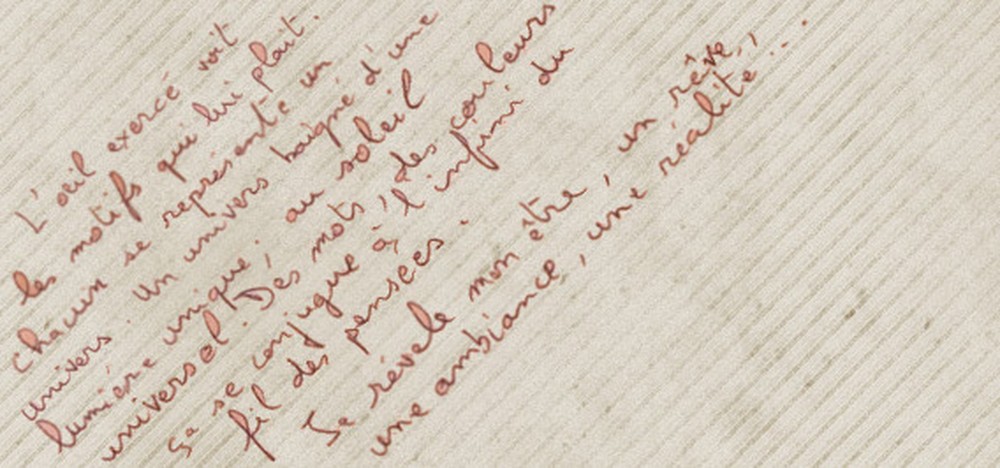 L'œil exercé voit
les motifs qui lui plait.
Chacun se représente un
univers. Un univers baigné d'une
lumière unique, au soleil
universel. Des mots, des couleurs
ça se conjugue à l'infini du
fil des pensées.
Je révèle mon être, un rêve,
une ambiance, une réalité...